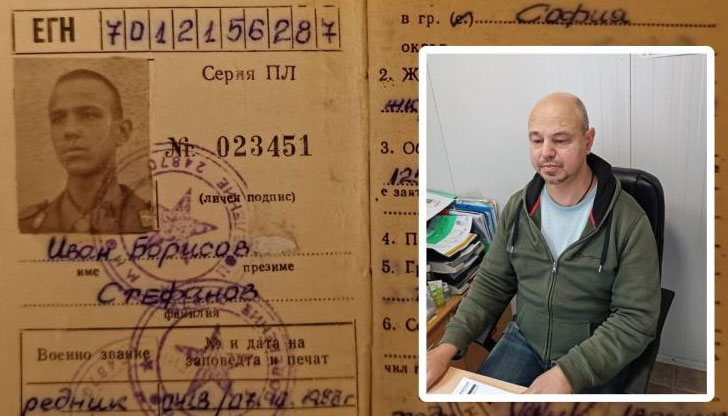 ЕГН 7012156287
Серия ПЛ
№ 023451
(личен подпис)
Иван Борисов
име презиме
Стефанов
фамилия
Военно звание
№ и дата на
заповедта и печат
редник
в гр. (с.) София
окол
2. Ж
3. Об
е завъ
4. П
5. Гр
6. Се
чил п